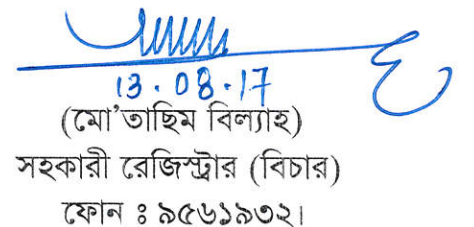 13.08.17
(মো'তাছিম বিল্যাহ)
সহকারী রেজিস্ট্রার (বিচার)
ফোন ঃ ৯৫৬১৯৩২।